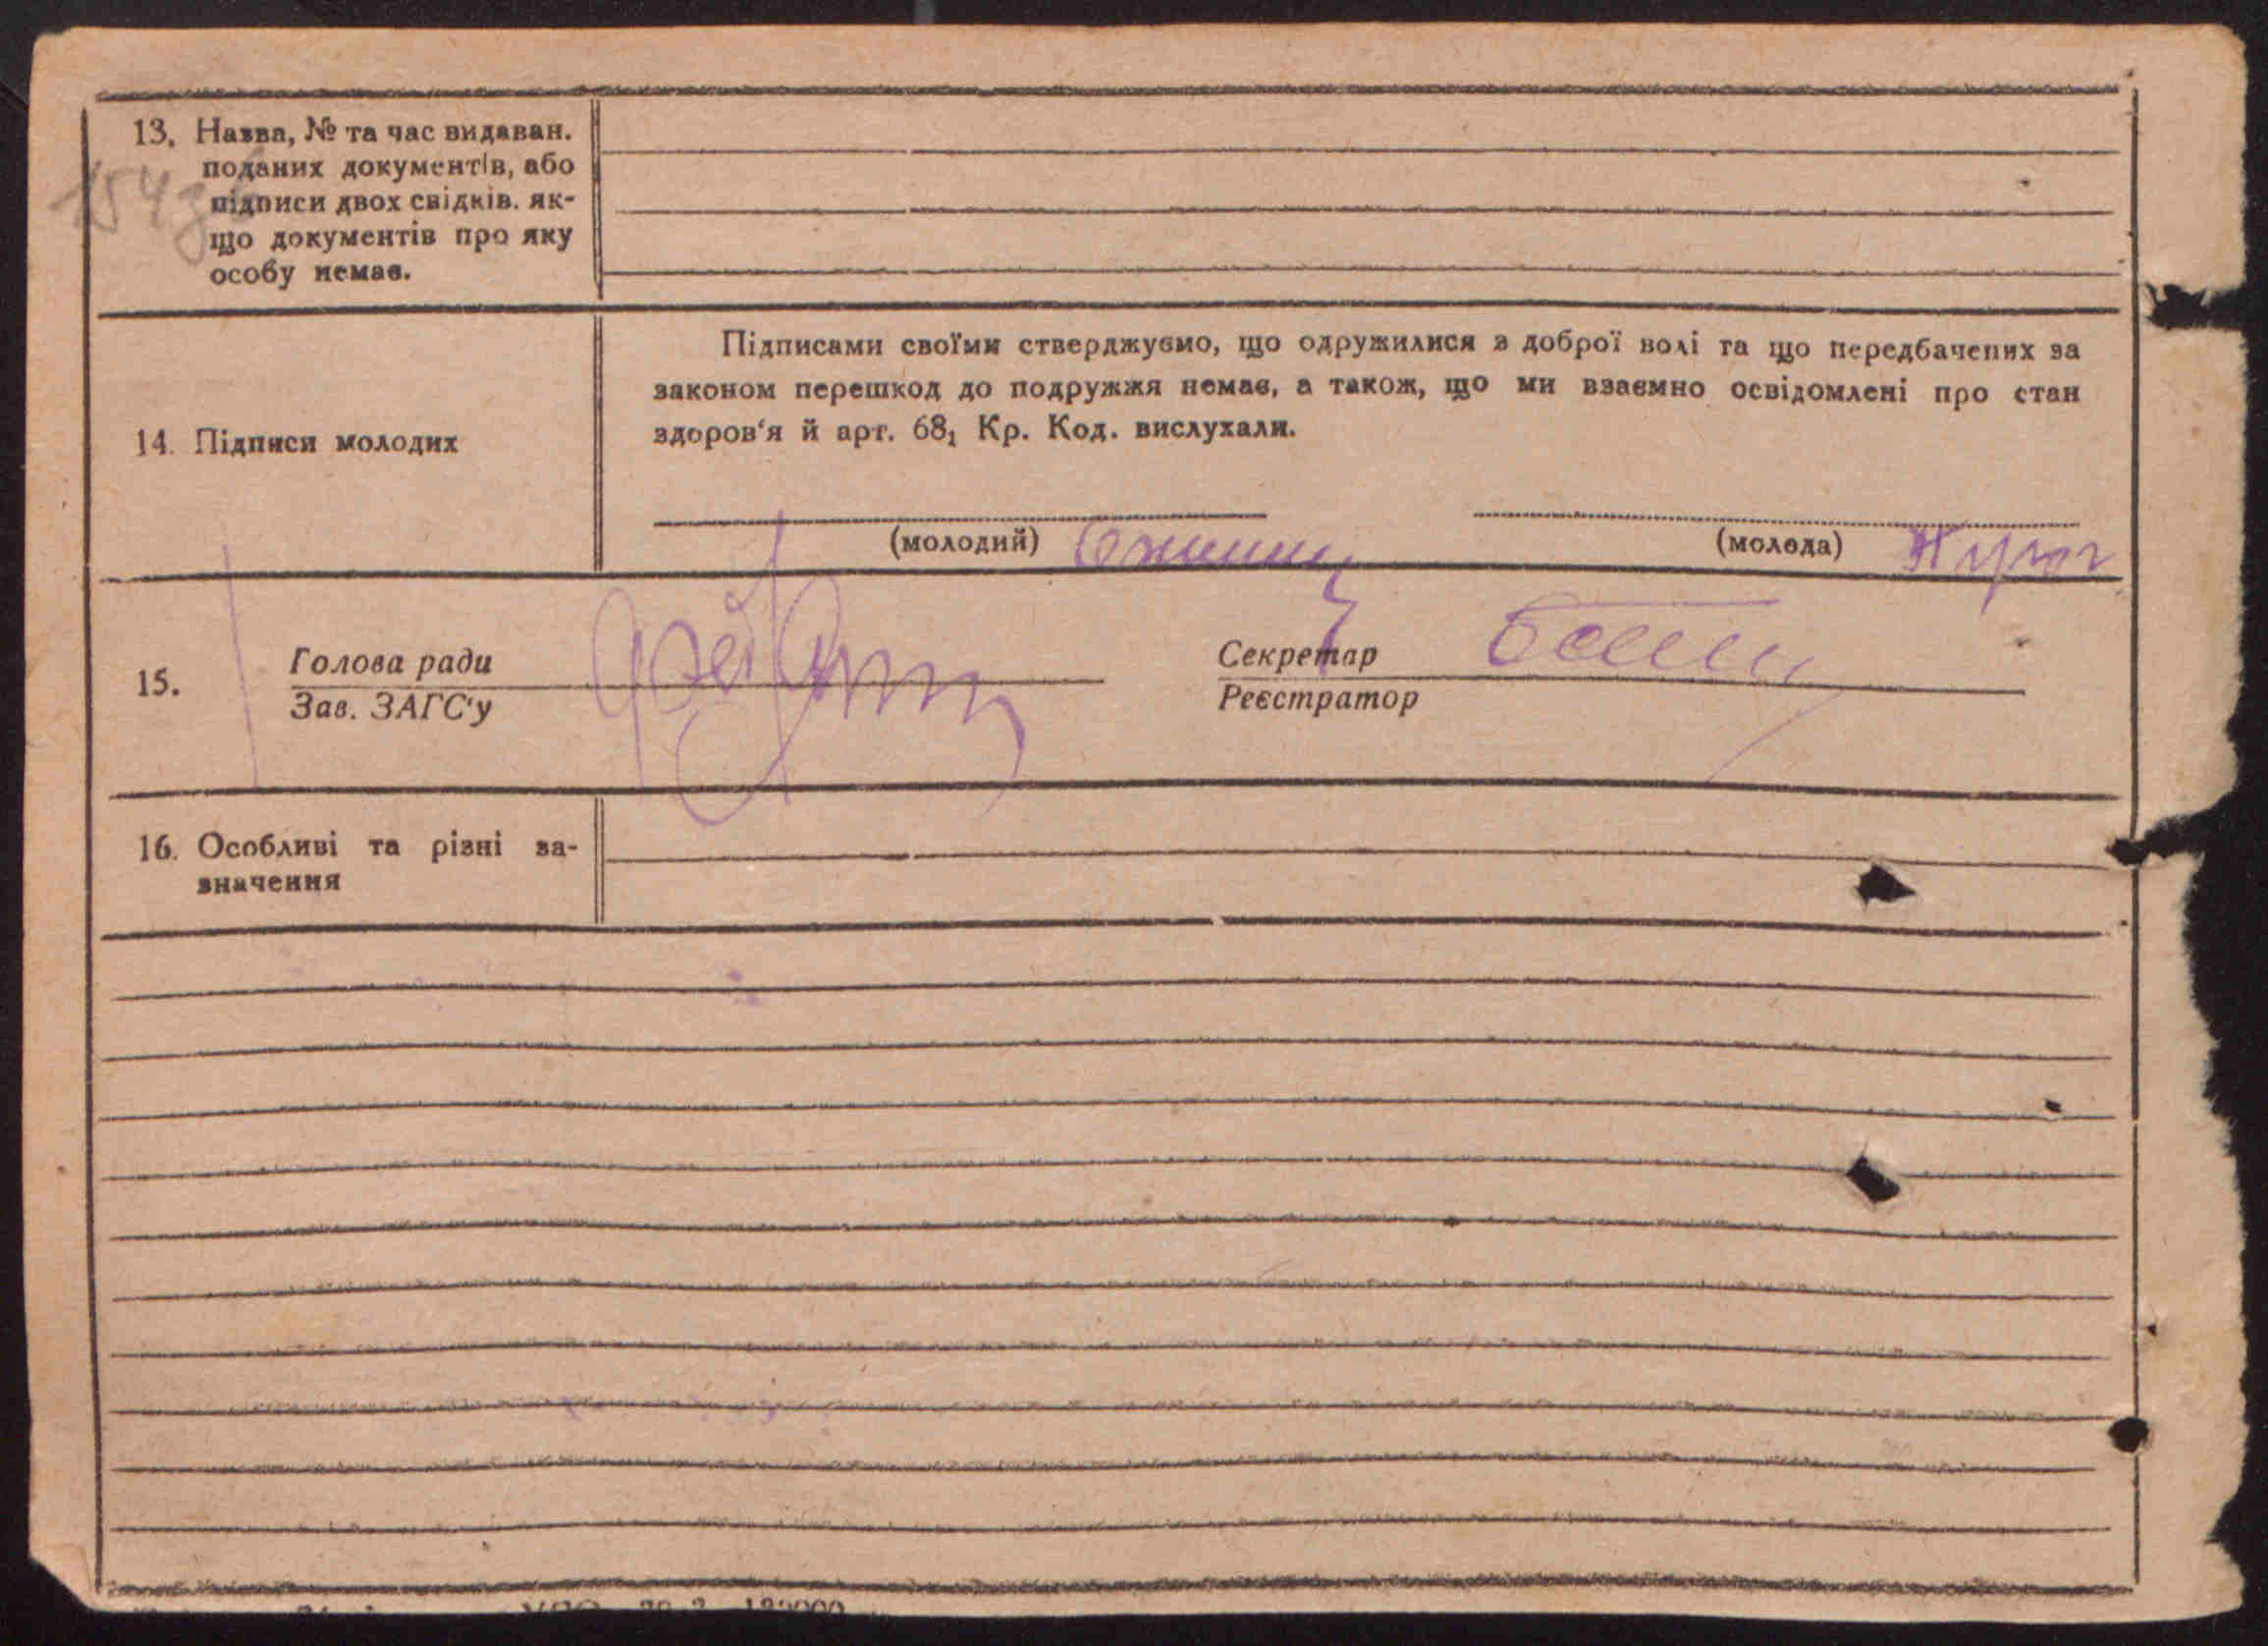 13. Назва, № та час видаван.
поданих документів, або
підписи двох свідків. як-
що документів про яку
особу немає.
154
14. Підписи молодих
Підписами своїми стверджуємо, що одружилися з доброї волі та що передбачених за
законом перешкод до подружжя немає, а також, що ми взаємно освідомлені про стан
здоров‘я й арт. 68₁ Кр. Код. вислухали.
(молодий)
(молода)
15.
Голова ради
Зав. ЗАГС‘у
Секретар
Реєстратор
16. Особливі та різні за-
значення